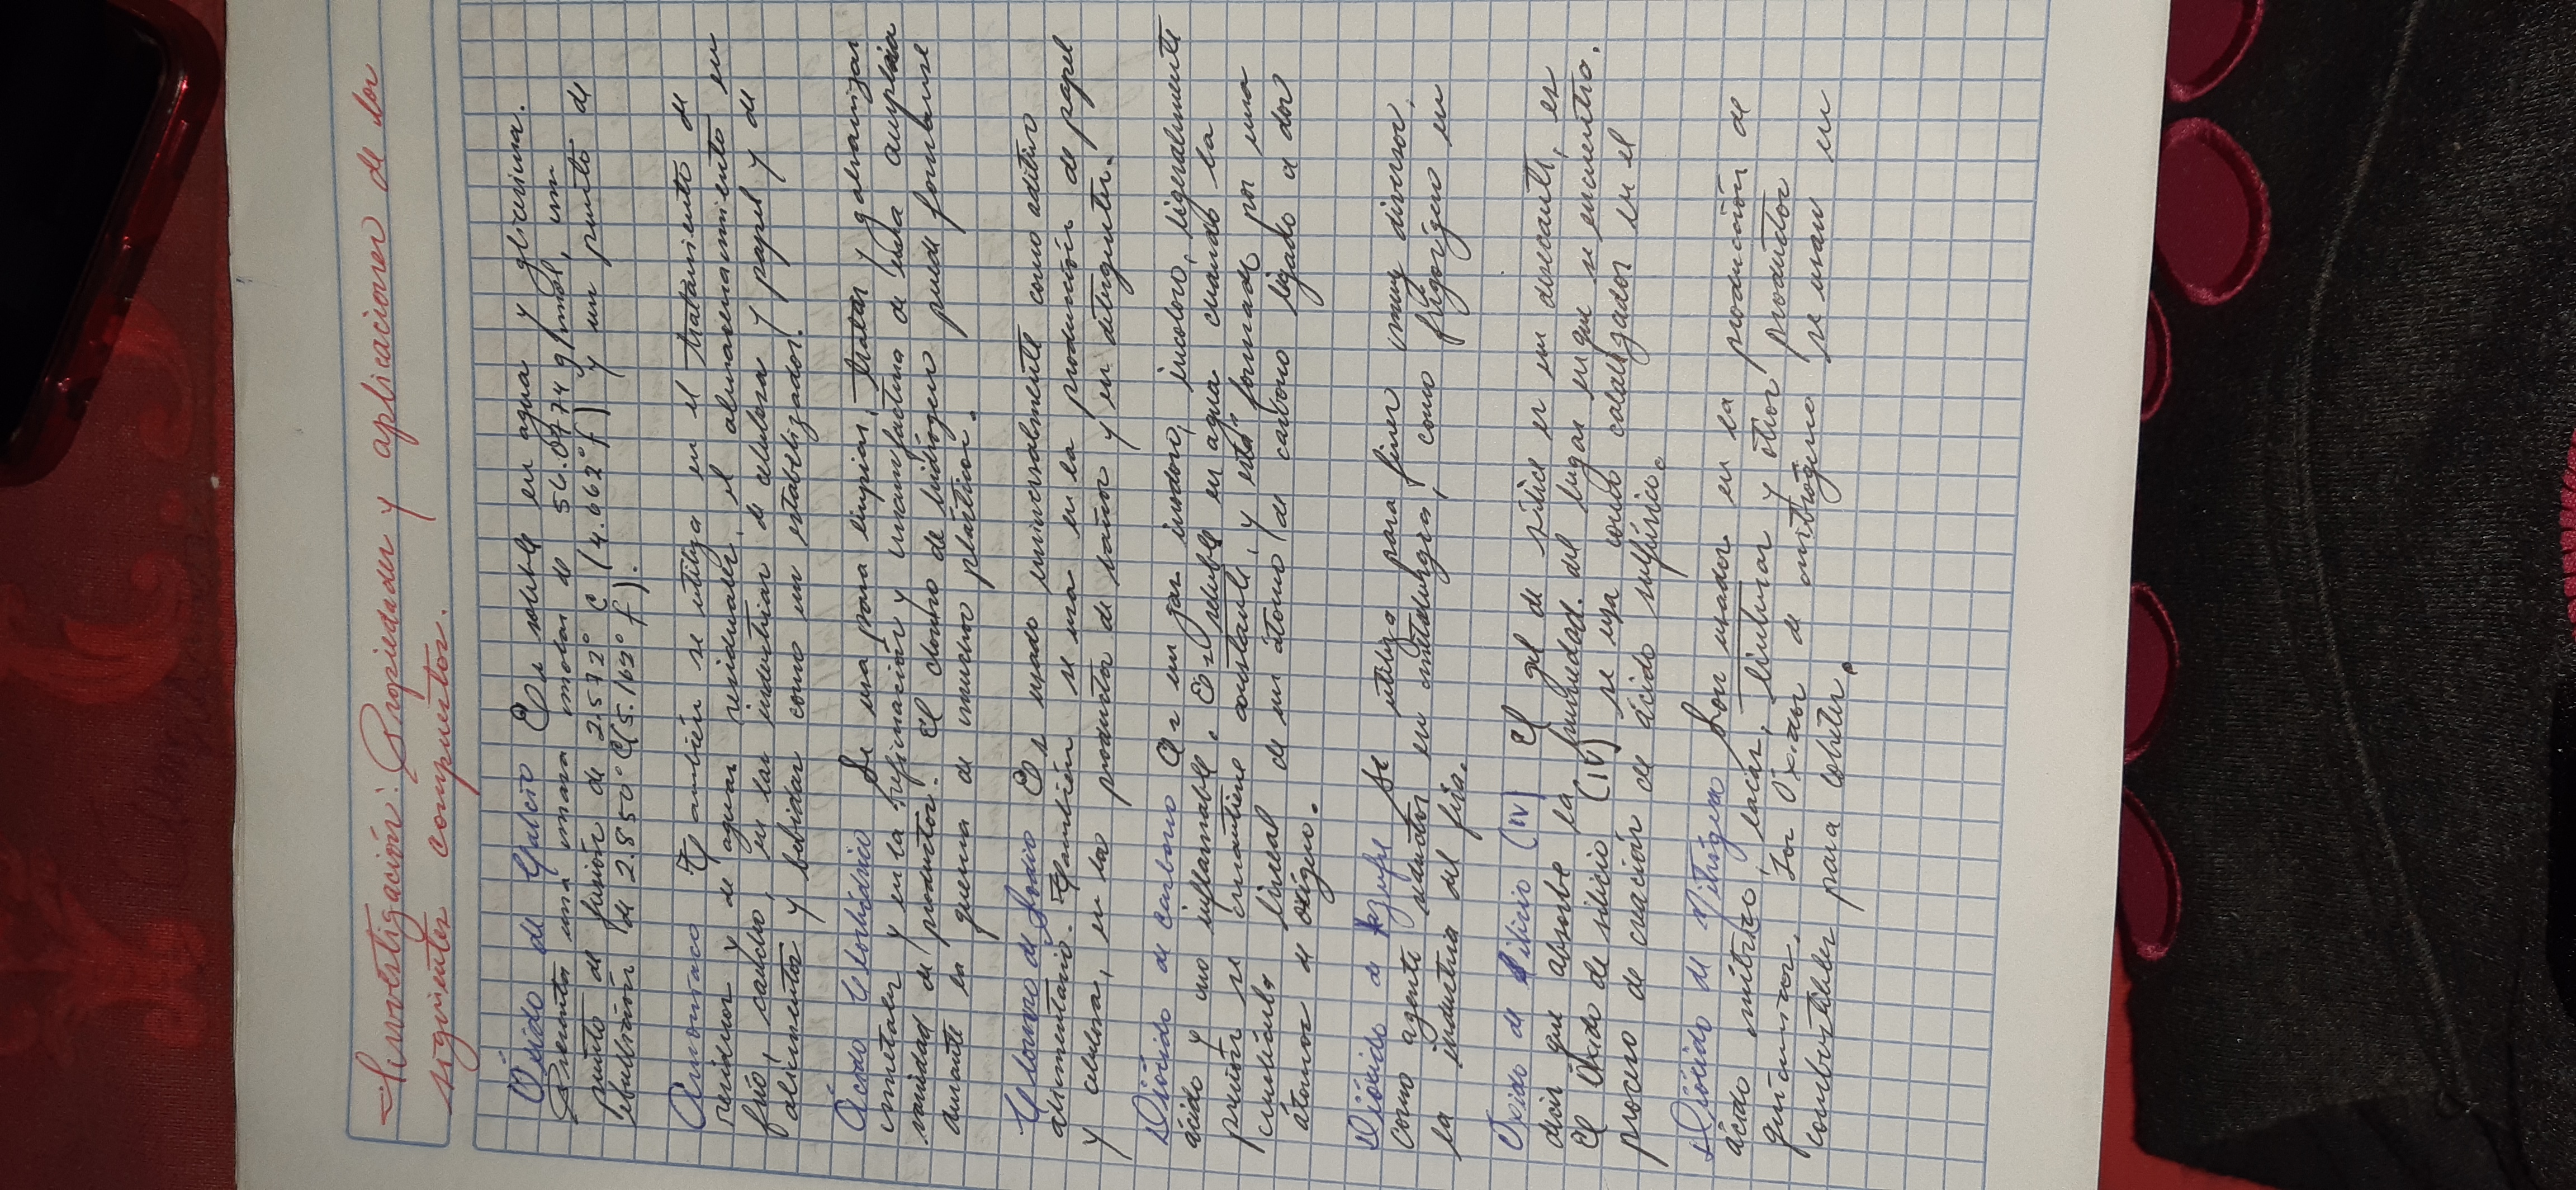 Investigación: Propiedades y aplicaciones de los
siguientes compuestos.
Óxido de Calcio Es soluble en agua y glicerina.
Presenta una masa molar de 56.0774 g/mol, un
punto de fusión de 2.572° C (4.662° F) y un punto de
ebullición de 2.850° C (5.162° F).
Amoniaco También se utiliza en el tratamiento de
residuos y de aguas residuales, el almacenamiento en
frío, caucho, en las industrias de celulosa y papel y de
alimentos y bebidas como un estabilizador.
Ácido Clorhídrico Se usa para limpiar, tratar y galvanizar
metales y en la refinación y manufactura de una amplia
variedad de productos. El cloruro de hidrógeno puede formarse
durante la quema de muchos plásticos.
Cloruro de sodio Es usado universalmente como aditivo
alimentario. También se usa en la producción de papel
y celulosa, en los productos de baño y en detergentes.
Dióxido de carbono Es un gas inodoro, incoloro, ligeralmente
ácido y no inflamable. Es soluble en agua cuando la
presión se mantiene constante, y está formado por una
molécula lineal de un átomo de carbono ligado a dos
átomos de oxígeno.
Dióxido de Azufre Se utiliza para fines muy diversos,
como agente reductor en metalurgia, como frigorígeno en
la industria del fria.
Óxido de Silicio (IV) El gel de sílice es un desecante, es
decir que absorbe la humedad del lugar en que se encuentra.
El Óxido de silicio (IV) se usa como catalizador en el
proceso de creación de ácido sulfúrico.
Dióxido de Nitrógeno Son usados en la producción de
ácido nítrico, lacas, tinturas y otros productos
químicos. Los Óxidos de nitrógeno se usan en
combustibles para cohetes.